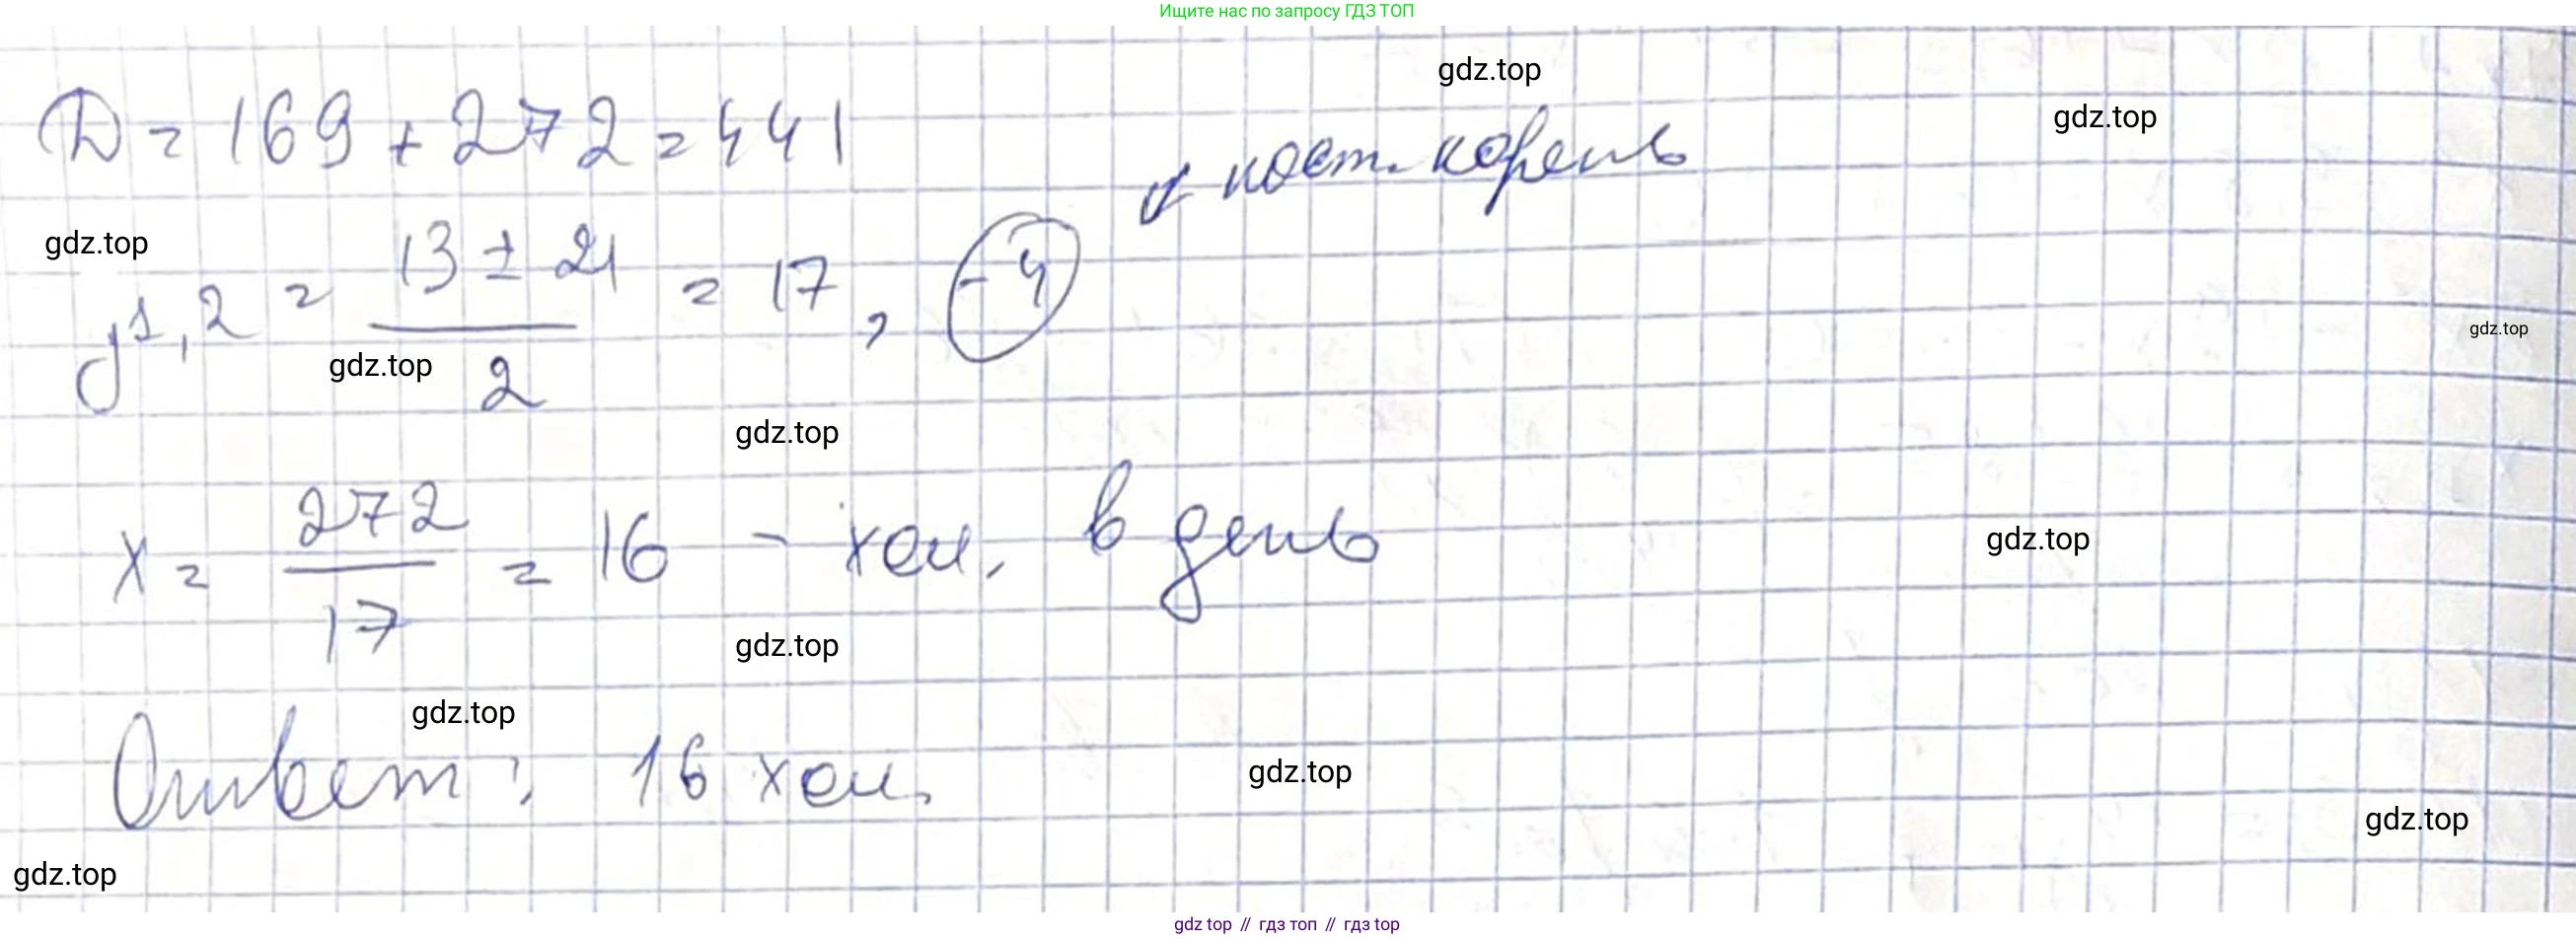 Ищите нас по запросу ГДЗ ТОП
gdz.top
gdz.top
D = 169 + 272 = 441
пост. корень
gdz.top
y1,2 = (13 ± 21) / 2 = 17, -4
gdz.top
gdz.top
gdz.top
x = 272 / 17 = 16 - хол. в день
gdz.top
gdz.top
gdz.top
Ответ: 16 хол.
gdz.top
gdz.top
gdz.top
gdz top // гдз топ // gdz top